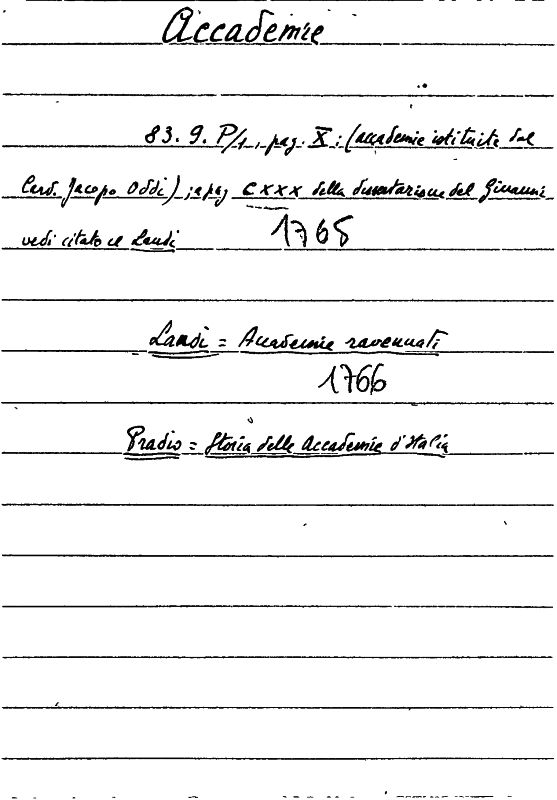 Accademie
83. 9. P/1, pag. X; (accademie istituite dal
Card. Jacopo Oddi); a pag CXXX della dissertazione del Ginanni
vedi citato il Landi 1765
Landi = Accademie ravennati
1766
Pradio = Storia delle Accademie d'Italia